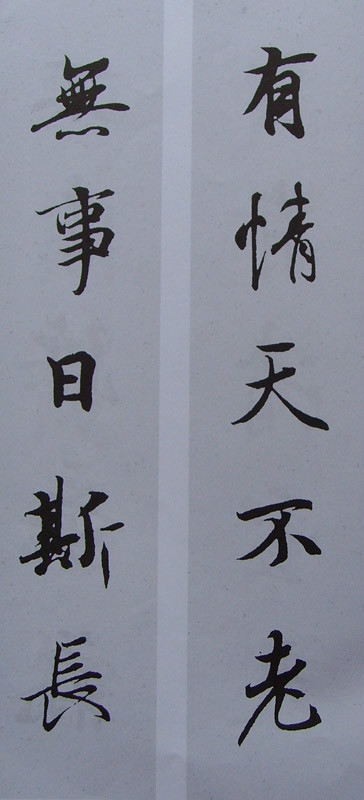 有情天不老
無事日斯長